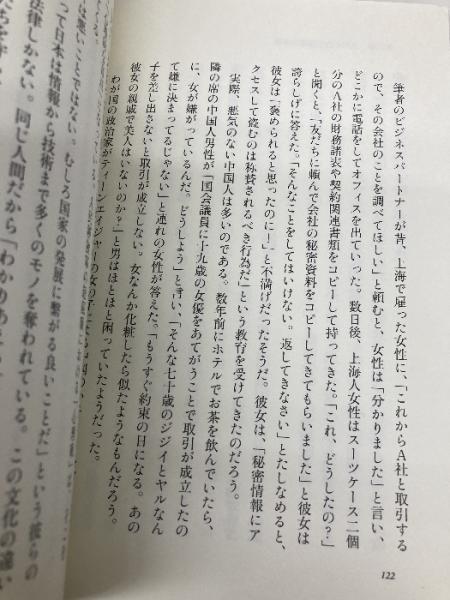 筆者のビジネスパートナーが昔、上海で雇った女性に、「これからA社と取引する
ので、その会社のことを調べてほしい」と頼むと、女性は「分かりました」と言い、
どこかに電話をしてオフィスを出ていった。数日後、上海人女性はスーツケース二個
分のA社の財務諸表や契約関連書類をコピーして持ってきた。「これ、どうしたの?」
と聞くと、「友だちに頼んで会社の秘密資料をコピーしてきてもらいました」と彼女は
誇らしげに答えた。「そんなことをしてはいけない。返してきなさい」とたしなめると、
彼女は、「褒められると思ったのに!」と不満げだったそうだ。彼女は、「秘密情報にア
クセスして盗むのは称賛されるべき行為だ」という教育を受けてきたのだろう。
実際、悪気のない中国人は多いのである。数年前にホテルでお茶を飲んでいたら、
隣の席の中国人男性が「国会議員に十九歳の女優をあてがうことで取引が成立したの
に、女が嫌がっているんだ。どうしよう」と言い、「そんな七十歳のジジイとヤルなん
て嫌に決まってるじゃない」と連れの女性が答えた。「もうすぐ約束の日になる。あの
子を差し出さないと取引が成立しない。女なんか化粧したら似たようなもんだろう。
彼女の親戚で美人はいないのか?」と男はほとほと困っていたようだった。
わが国の政治家がティーンエイジャーの女の子
は悪いことではない。むしろ国家の発展に繫がる良いことだ」という彼らの
って日本は情報から技術まで多くのモノを奪われている。この文化の違い
法律しかない。同じ人間だから「わかりあ
122